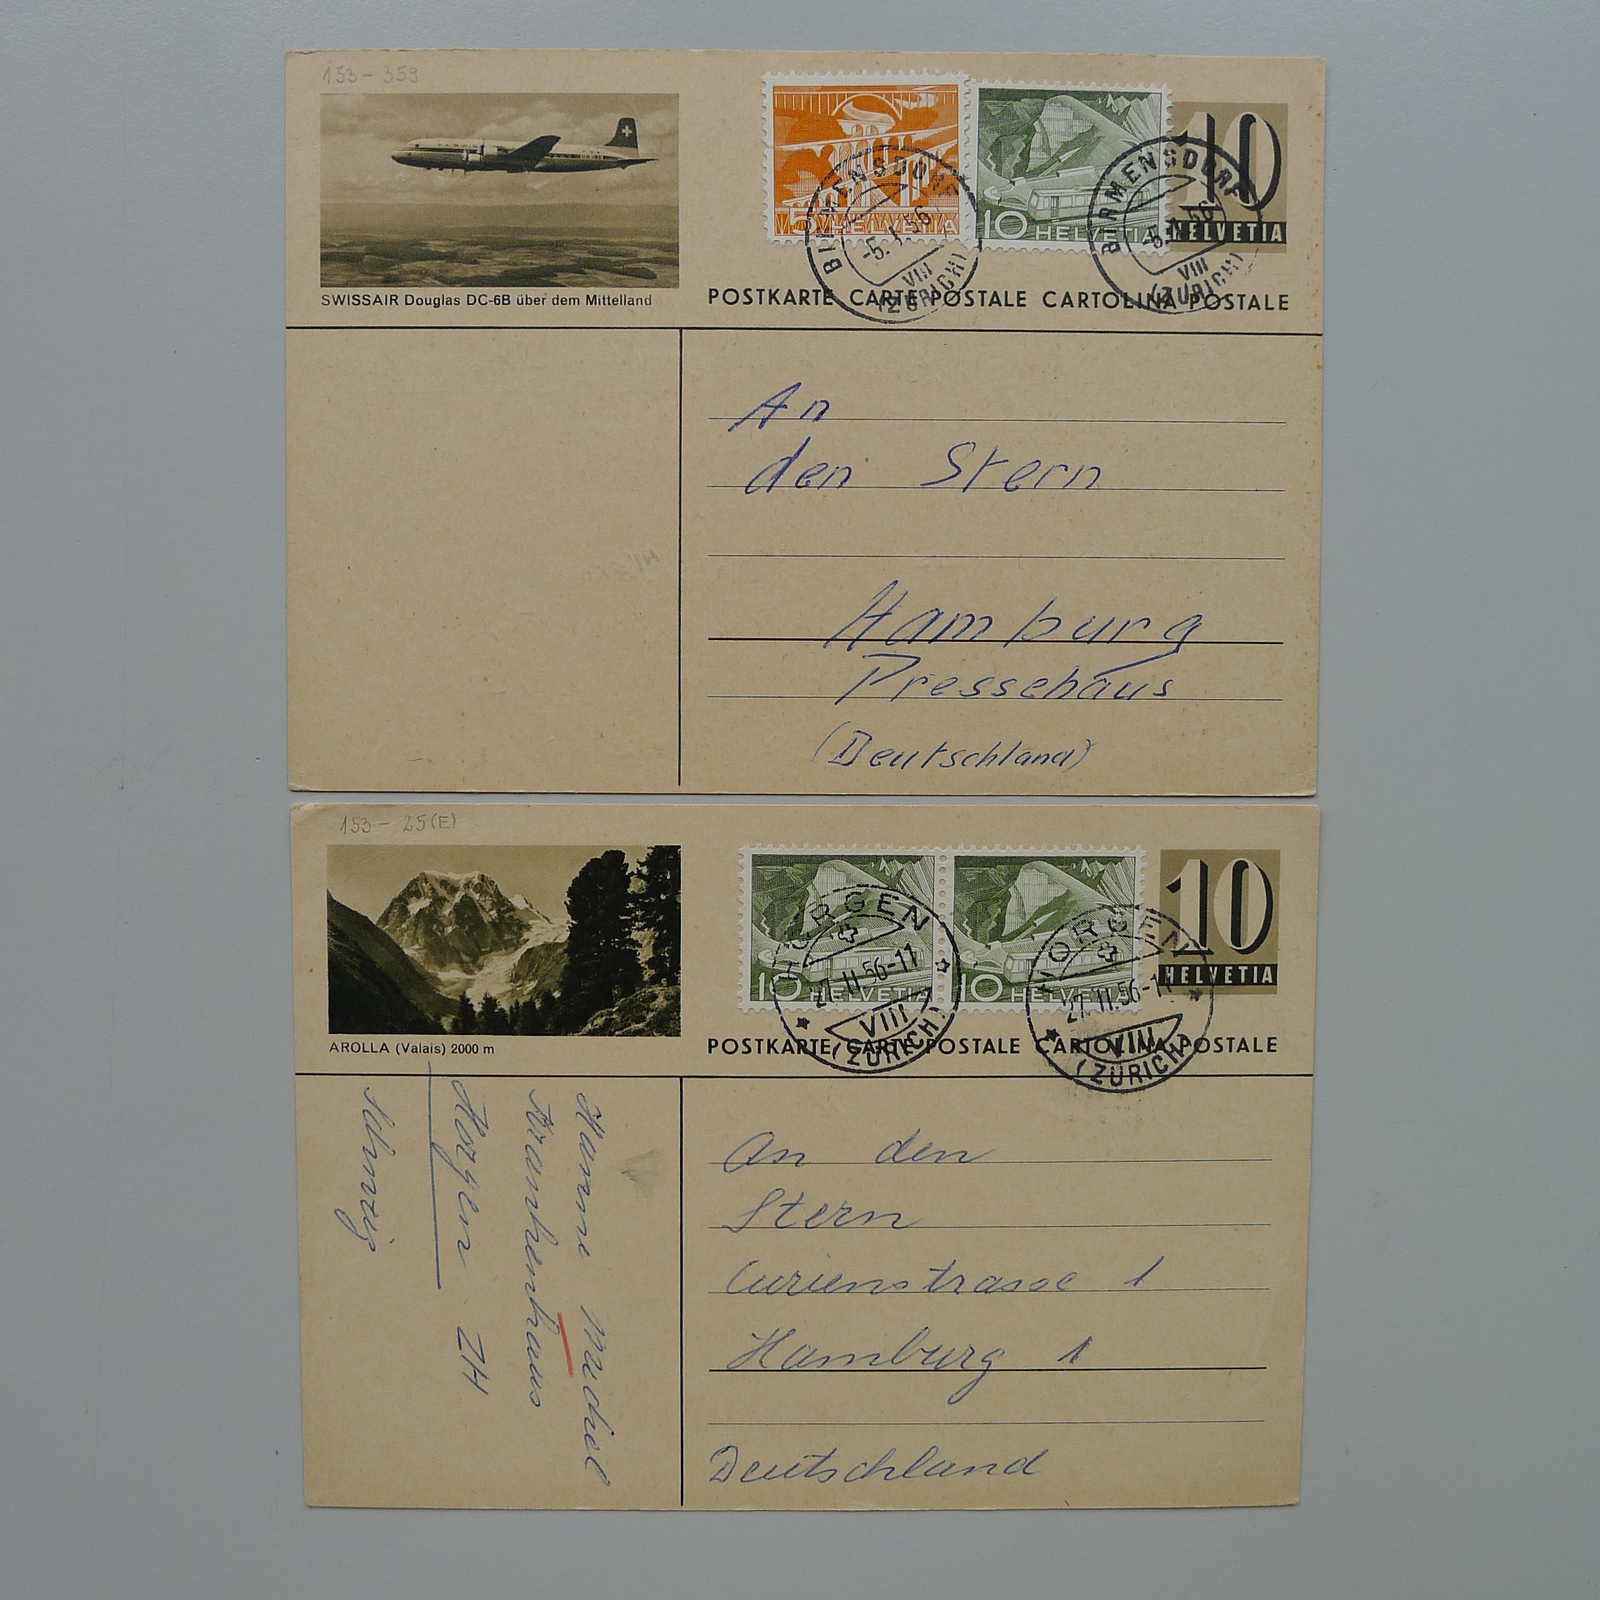 153-359
5 HELVETIA
10 HELVETIA
10
HELVETIA
BIRMENSDORF
-5.1.56
VIII
(ZÜRICH)
BIRMENSDORF
-5.1.56
VIII
(ZÜRICH)
SWISSAIR Douglas DC-6B über dem Mittelland
POSTKARTE CARTE POSTALE CARTOLINA POSTALE
An
den Stern
Hamburg
Pressehaus
(Deutschland)
153-25(E)
10 HELVETIA
10 HELVETIA
10
HELVETIA
HORGEN
27.II.56-11
VIII
(ZÜRICH)
HORGEN
27.II.56-11
VIII
(ZÜRICH)
AROLLA (Valais) 2000 m
POSTKARTE CARTE POSTALE CARTOLINA POSTALE
Hanni
Krankenhaus
Horgen ZH
Schweiz
An den
Stern
Curienstrasse 1
Hamburg 1
Deutschland